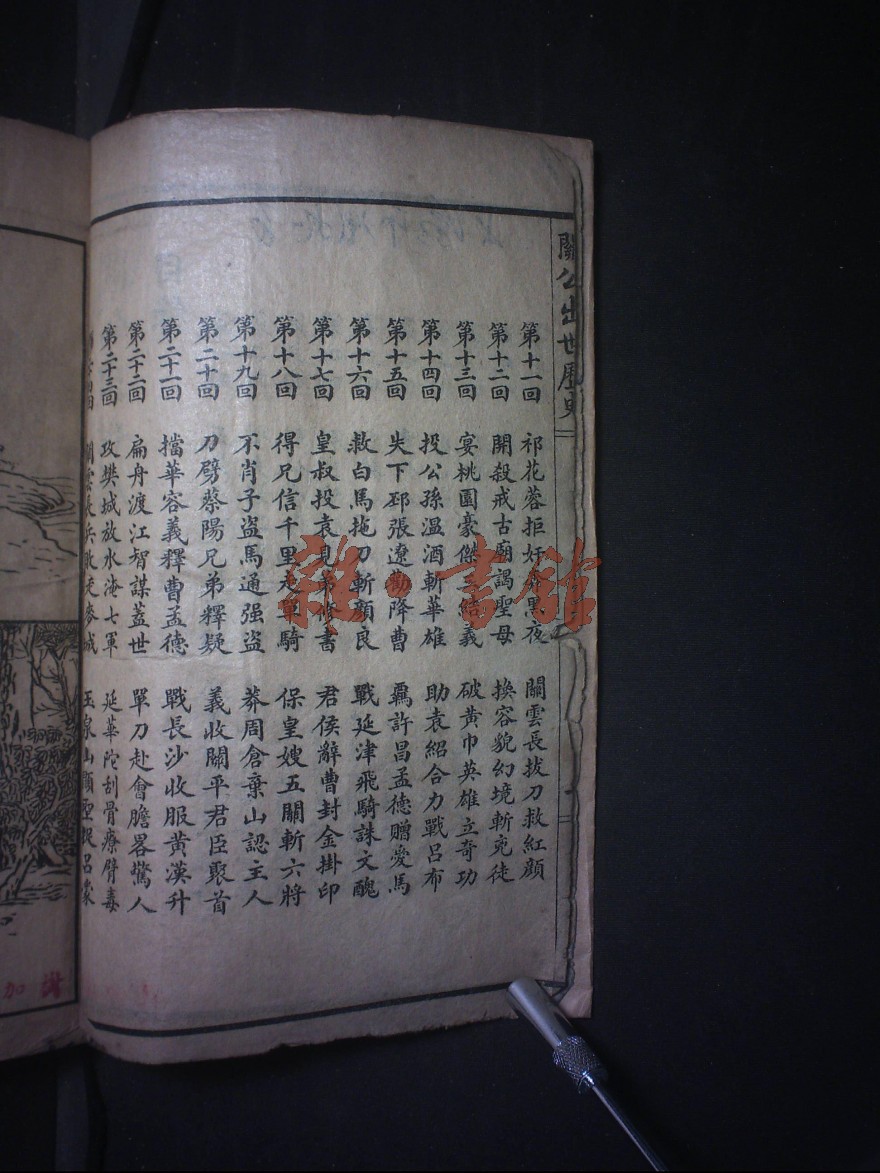 關公出世歷史
第十一回 祁花蓉拒奸奔黑夜 關雲長拔刀救紅顏
第十二回 開殺戒古廟謁聖母 換容貌幻境斬兇徒
第十三回 宴桃園豪傑三結義 破黃巾英雄立奇功
第十四回 投公孫溫酒斬華雄 助袁紹合力戰呂布
第十五回 失下邳張遼勸降曹 羈許昌孟德贈愛馬
第十六回 救白馬拖刀斬顏良 戰延津飛騎誅文醜
第十七回 皇叔投袁見弟修書 君侯辭曹封金掛印
第十八回 得兄信千里走單騎 保皇嫂五關斬六將
第十九回 不肖子盜馬通强盜 莽周倉棄山認主人
第二十回 刀劈蔡陽兄弟釋疑 義收關平君臣聚首
第二十一回 擋華容義釋曹孟德 戰長沙收服黃漢升
第二十二回 扁舟渡江智謀蓋世 單刀赴會膽畧驚人
第二十三回 攻樊城放水淹七軍 延華陀刮骨療臂毒
關雲長兵敗走麥城 玉泉山顯聖捉呂蒙
雜·書館
加